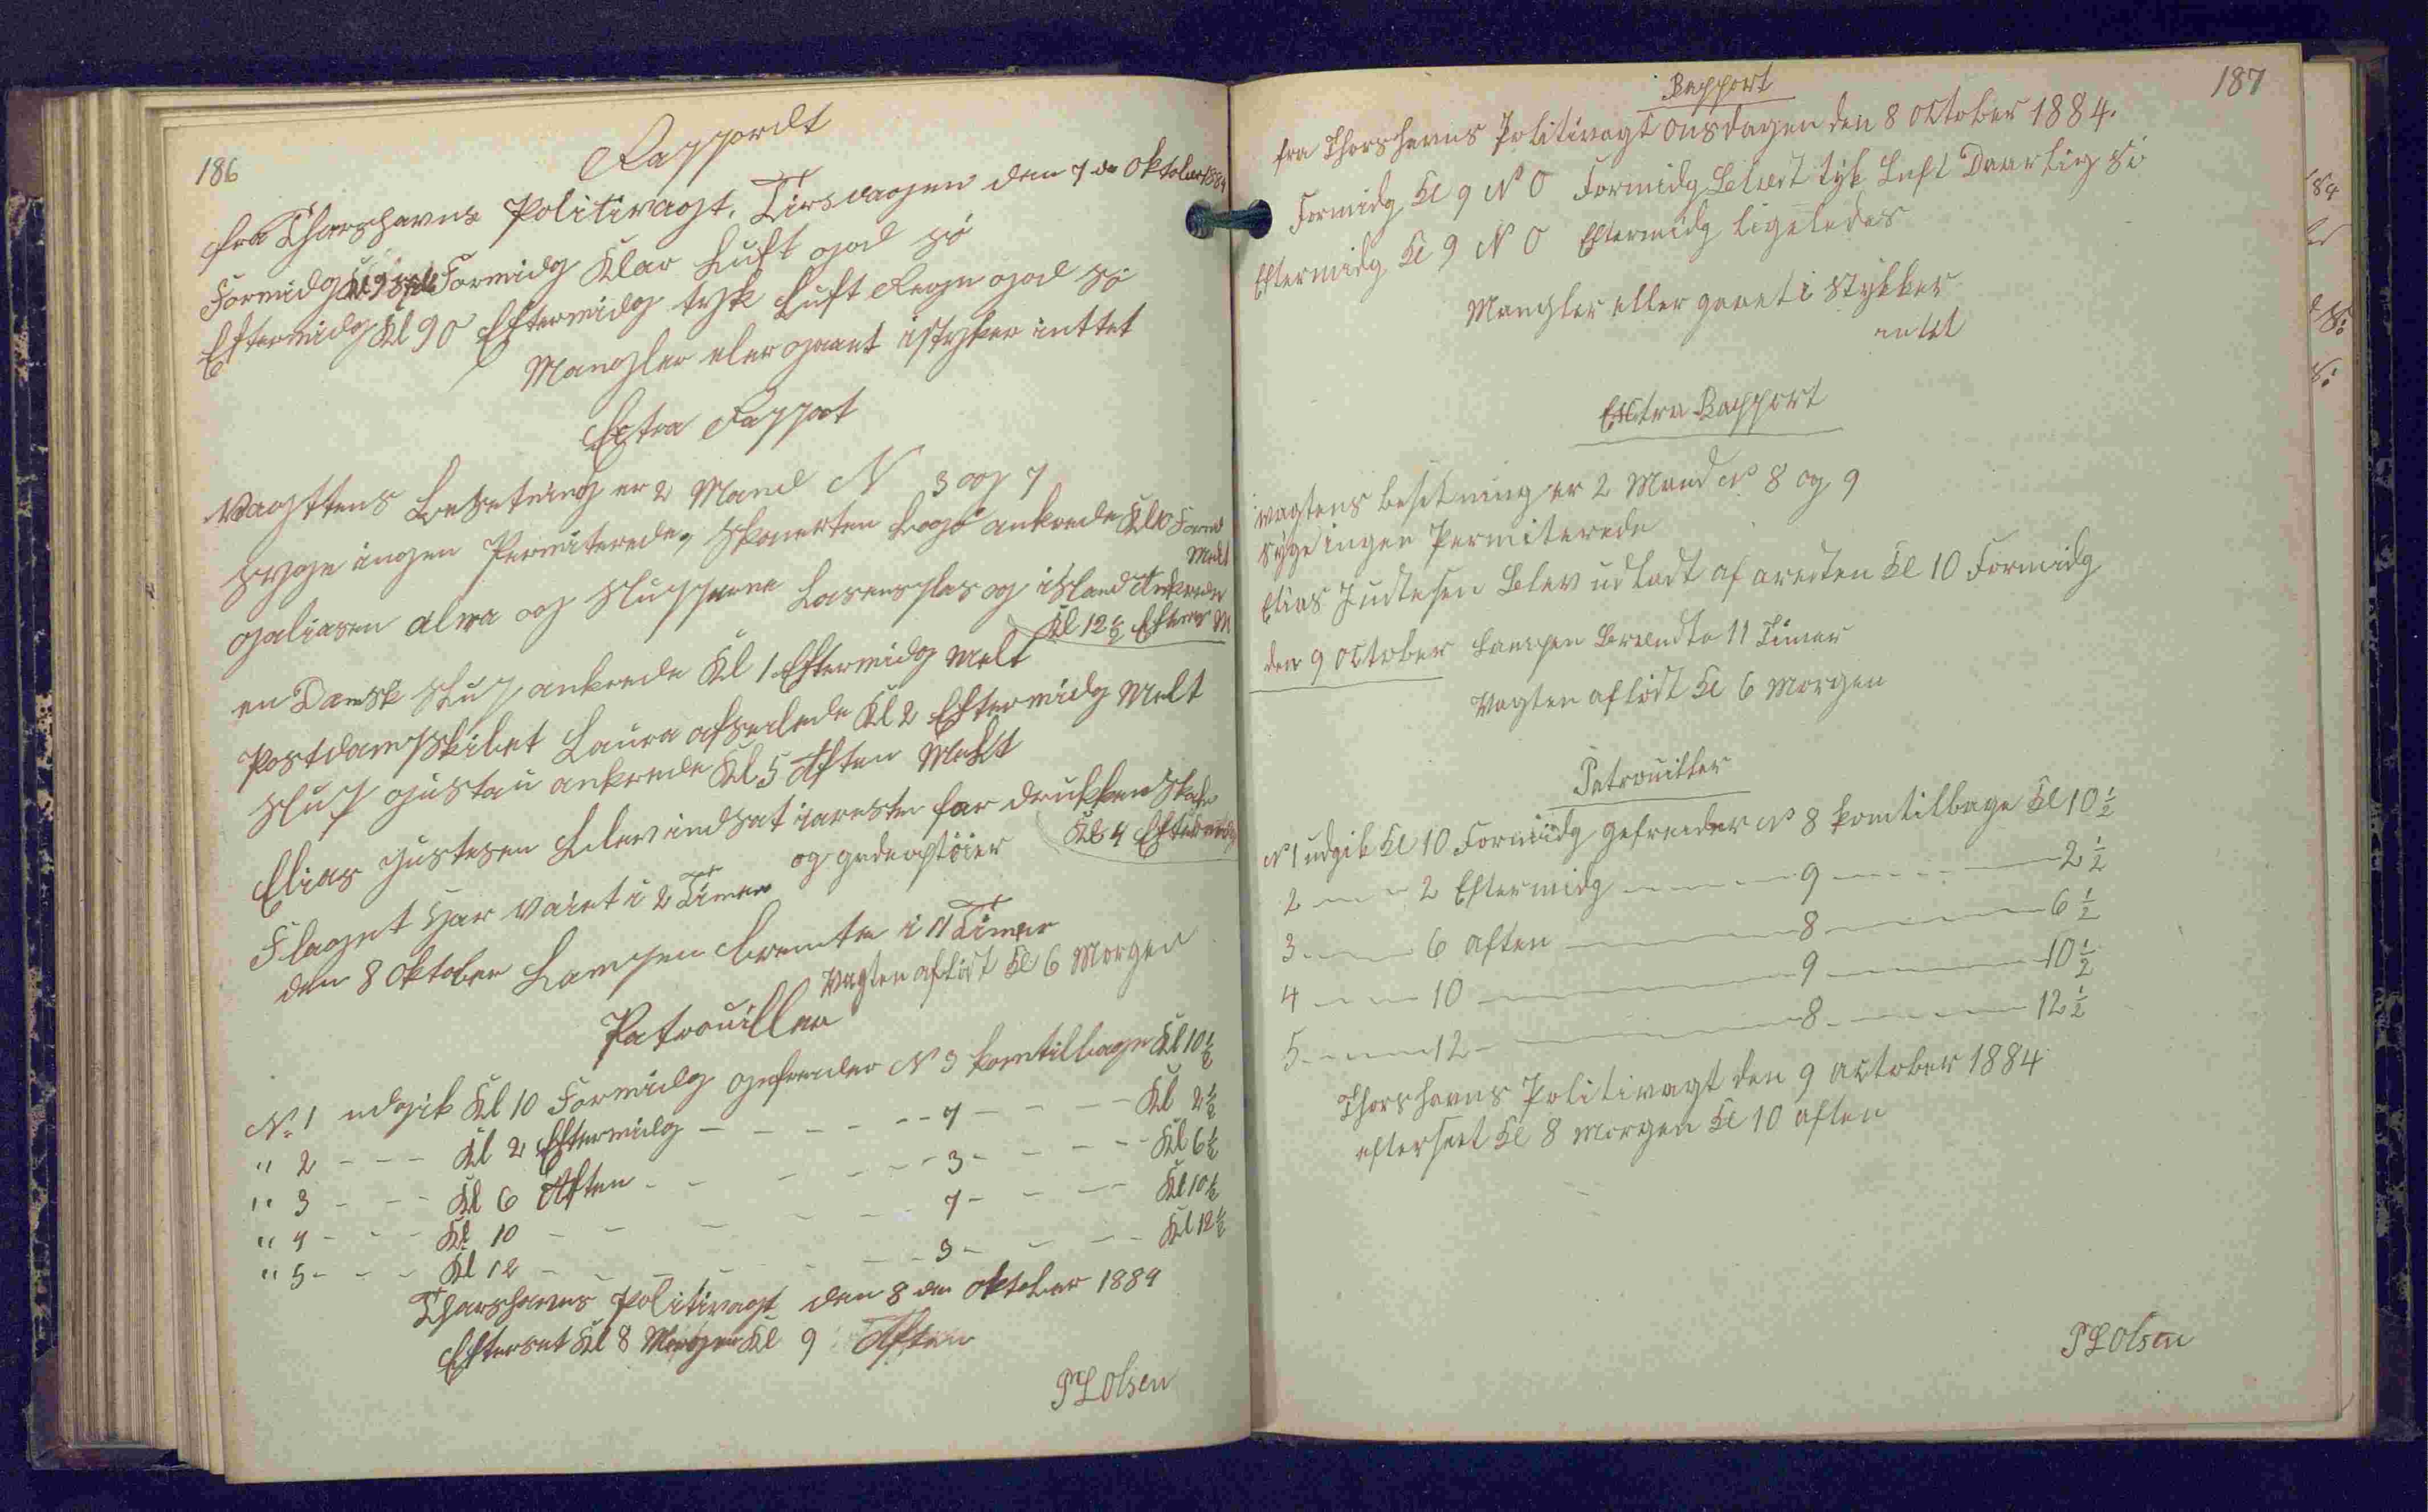 186
Rapportt
fra Thorshavns Politivagt, Tirsdagen den 7 de Oktober 1884
Formidg Kl 9 Formidg Klar Luft god sö
Eftermidg Kl 9 O Eftermidg tyk Luft Regn god sö
Mangler eler gaaet istyker inttet
Extra Rapport
Vagttens Besetning er 2 Mand N 3 og 7
syge ingen Permiterede, Skonerten ankrede Kl 10 Formd
Melt
galiasen alma og Slupperne og island Ankrede
Kl 12½ Efterm M
en Dansk Slup ankrede Kl 1 Eftermidg Melt
Postdampskibet Laura afseilede Kl 2 Eftermidg Melt
Slup gustav ankrede Kl 5 Aften Meldt
Elias Justesen blev indsat iaresten for drukkenskab
og gadeoptöier Kl 4 Eftermidg
Flaget har vaiet i 2 Timer
den 8 Oktober Lampen brente i 11 Timer
Vagten aflöst Kl 6 Morgen
Patrouiller
No 1 udgik Kl 10 Formidg gefreider N 3 komtilbage Kl 10½
" 2 - - - Kl 2 Eftermidg - - - - - 7 - - - - Kl 2½
" 3 - - - Kl 6 Aften - - - - - 3 - - - - Kl 6½
" 4 - - - Kl 10 - - - - - 7 - - - Kl 10½
" 5 - - - Kl 12 - - - - - 3 - - - - Kl 12½
Thorshavns Politivagt den 8 de Oktober 1884
Efterset Kl 8 Morgen Kl 9 Aften
P L Olsen
187
Rapport
fra Thorshavns Politivagt Onsdagen den 8 October 1884.
Formidg Kl 9 N O Formidg Blæst tyk Luft Daarlig Sö
Eftermidg Kl 9 N O Eftermidg ligeledes
Mangler eller gaaet i Stykker
intet
Extra Rapport
Vagtens besetning er 2 Mand No 8 og 9
Syge ingen Permiterede
Elias Justesen Blev udladt af aresten Kl 10 Formidg
den 9 October Lampen Brændte 11 Timer
Vagten aflöst Kl 6 Morgen
Patrouiller
No 1 udgik Kl 10 Formidg Gefreider No 8 komtilbage Kl 10½
2 - - - 2 Eftermidg - - - - 9 - - - - 2½
3 - - - 6 Aften - - - - 8 - - - - 6½
4 - - - 10 - - - - 9 - - - - 10½
5 - - - 12 - - - - 8 - - - - 12½
Thorshavns Politivagt den 9 October 1884
efterseet Kl 8 Morgen Kl 10 aften
P L Olsen